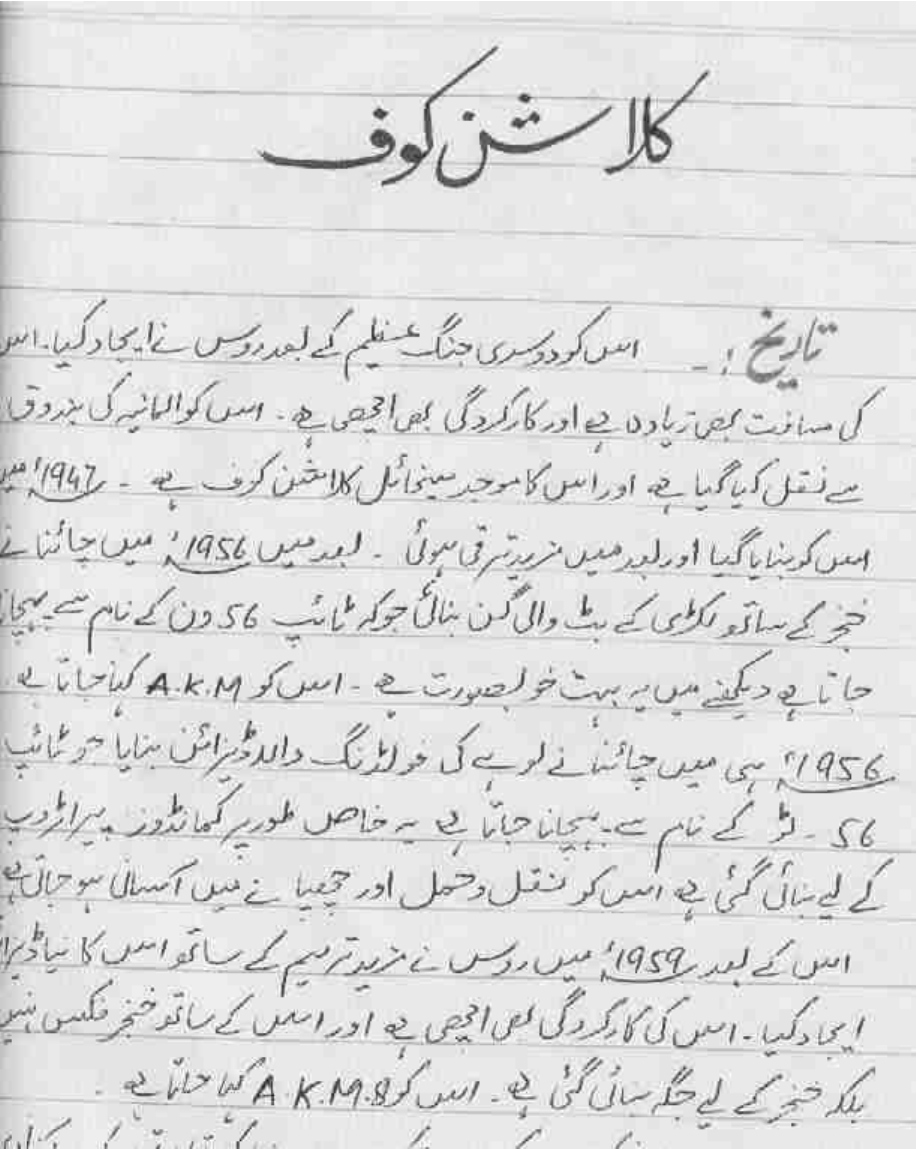 کلاشن کوف
تاریخ :- اس کو دوسری جنگ عظیم کے بعد روس نے ایجاد کیا۔ اس
کی مسافت بھی زیادہ ہے اور کارکردگی بھی اچھی ہے۔ اس کو المانیہ کی بندوق
سے نقل کیا گیا ہے اور اس کا موجد میخائل کلاشن کوف ہے۔ 1947ء میں
اس کو بنایا گیا اور بعد میں مزید ترقی ہوئی۔ بعد میں 1956ء میں چائنا نے
خنجر کے ساتھ لکڑی کے بٹ والی گن بنائی جو کہ ٹائپ 56 ون کے نام سے پہچانا
جاتا ہے دیکھنے میں یہ بہت خوبصورت ہے۔ اس کو A.K.M کہا جاتا ہے۔
1956ء ہی میں چائنا نے لوہے کی فولڈنگ والا ڈیزائن بنایا جو ٹائپ
56 - ٹو کے نام سے پہچانا جاتا ہے یہ خاص طور پر کمانڈوز پیراٹروپ
کے لیے بنائی گئی ہے اس کو نقل و حمل اور چھپانے میں آسانی ہو جاتی ہے
اس کے بعد 1959ء میں روس نے مزید ترمیم کے ساتھ اس کا نیا
ایجاد کیا۔ اس کی کارکردگی بھی اچھی ہے اور اس کے ساتھ خنجر فکس نہیں
بلکہ خنجر کے لیے جگہ بنائی گئی ہے۔ اس کو A.K.M.8 کہا جاتا ہے۔